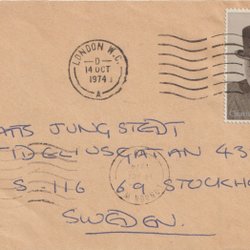 LONDON W.C.
-O-
14 OCT
1974
A
ATS JUNGSTEDT
TIDELIUSGATAN 43
S-116 69 STOCKHO
SWEDEN.